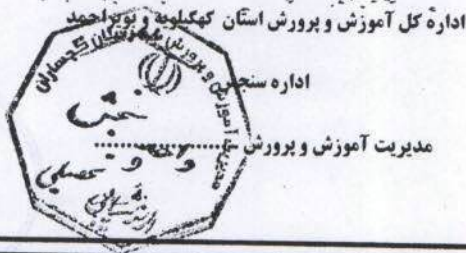 اداره کل آموزش و پرورش استان کهگیلویه و بویراحمد
اداره سنجش
مدیریت آموزش و پرورش ....................
مدیریت آموزش و پرورش شهرستان گچساران
سنجش
و تحصیلی